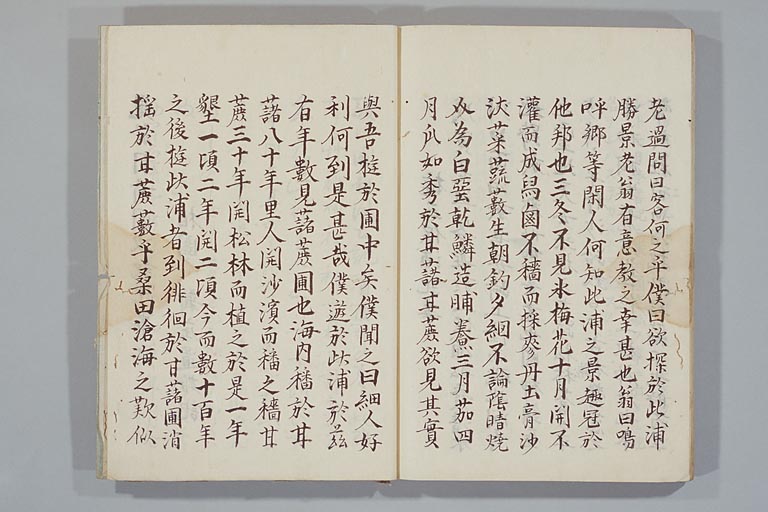 老過問曰客何之乎僕曰欲探於此浦
勝景老翁有意教之幸甚也翁曰鳴
呼鄉等閑人何知此浦之景趣冠於
他邦也三冬不見氷梅花十月開不
灌而成舄鹵不穡而採麥丹土膏沙
汰菜蔬藪生朝釣夕網不論陰晴燒
以為白堊乾鱗造脯養三月茄四
月瓜如秀於甘藷甘蔗欲見其實
與吾遊於圃中矣僕聞之曰細人好
利何到是甚哉僕遊於此浦於茲
有年數見藷蔗圃也海內種於甘
藷八十年里人開沙濱而種之穡甘
蔗三十年開松林而植之於是一年
墾一頃二年開二頃今而數十百年
之後遊此浦者到徘徊於甘藷圃消
搖於甘蔗藪乎桑田滄海之歎似